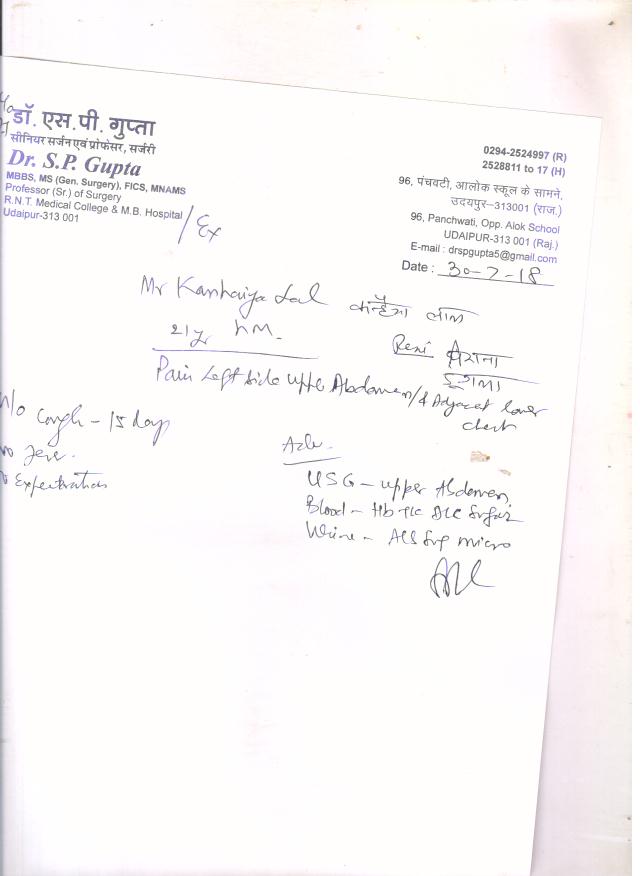 डॉ. एस.पी. गुप्ता
सीनियर सर्जन एवं प्रोफेसर, सर्जरी
Dr. S.P. Gupta
MBBS, MS (Gen. Surgery), FICS, MNAMS
Professor (Sr.) of Surgery
R.N.T. Medical College & M.B. Hospital
Udaipur-313 001
/Ex
0294-2524997 (R)
2528811 to 17 (H)
96, पंचवटी, आलोक स्कूल के सामने,
उदयपुर–313001 (राज.)
96, Panchwati, Opp. Alok School
UDAIPUR-313 001 (Raj.)
E-mail : drspgupta5@gmail.com
Date : 30-7-18
Mr Kanhaiya Lal कन्हैया लाल
21 yr
Pain Left side upper Abdomen / & Adjacent lower
chest
cough - 15 days
Expectration
Adv.
USG - upper Abdomen
Blood - Hb TLC DLC Sugar
Urine - Alb Sug micro